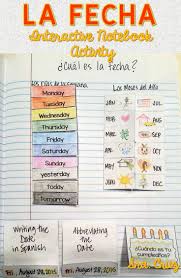 LA FECHA
Interactive Notebook
Activity
¿Cuál es la fecha?
Los días de la semana
Los Meses del Año
Monday
Tuesday
Wednesday
Thursday
Friday
Saturday
Sunday
yesterday
Today
Tomorrow
Writing the
Date
in Spanish
Fri, August 28, 2015
Abbreviating
the
Date
Fri, August 28, 2015
¿Cuándo es tu
cumpleaños?
Srta. Cruz